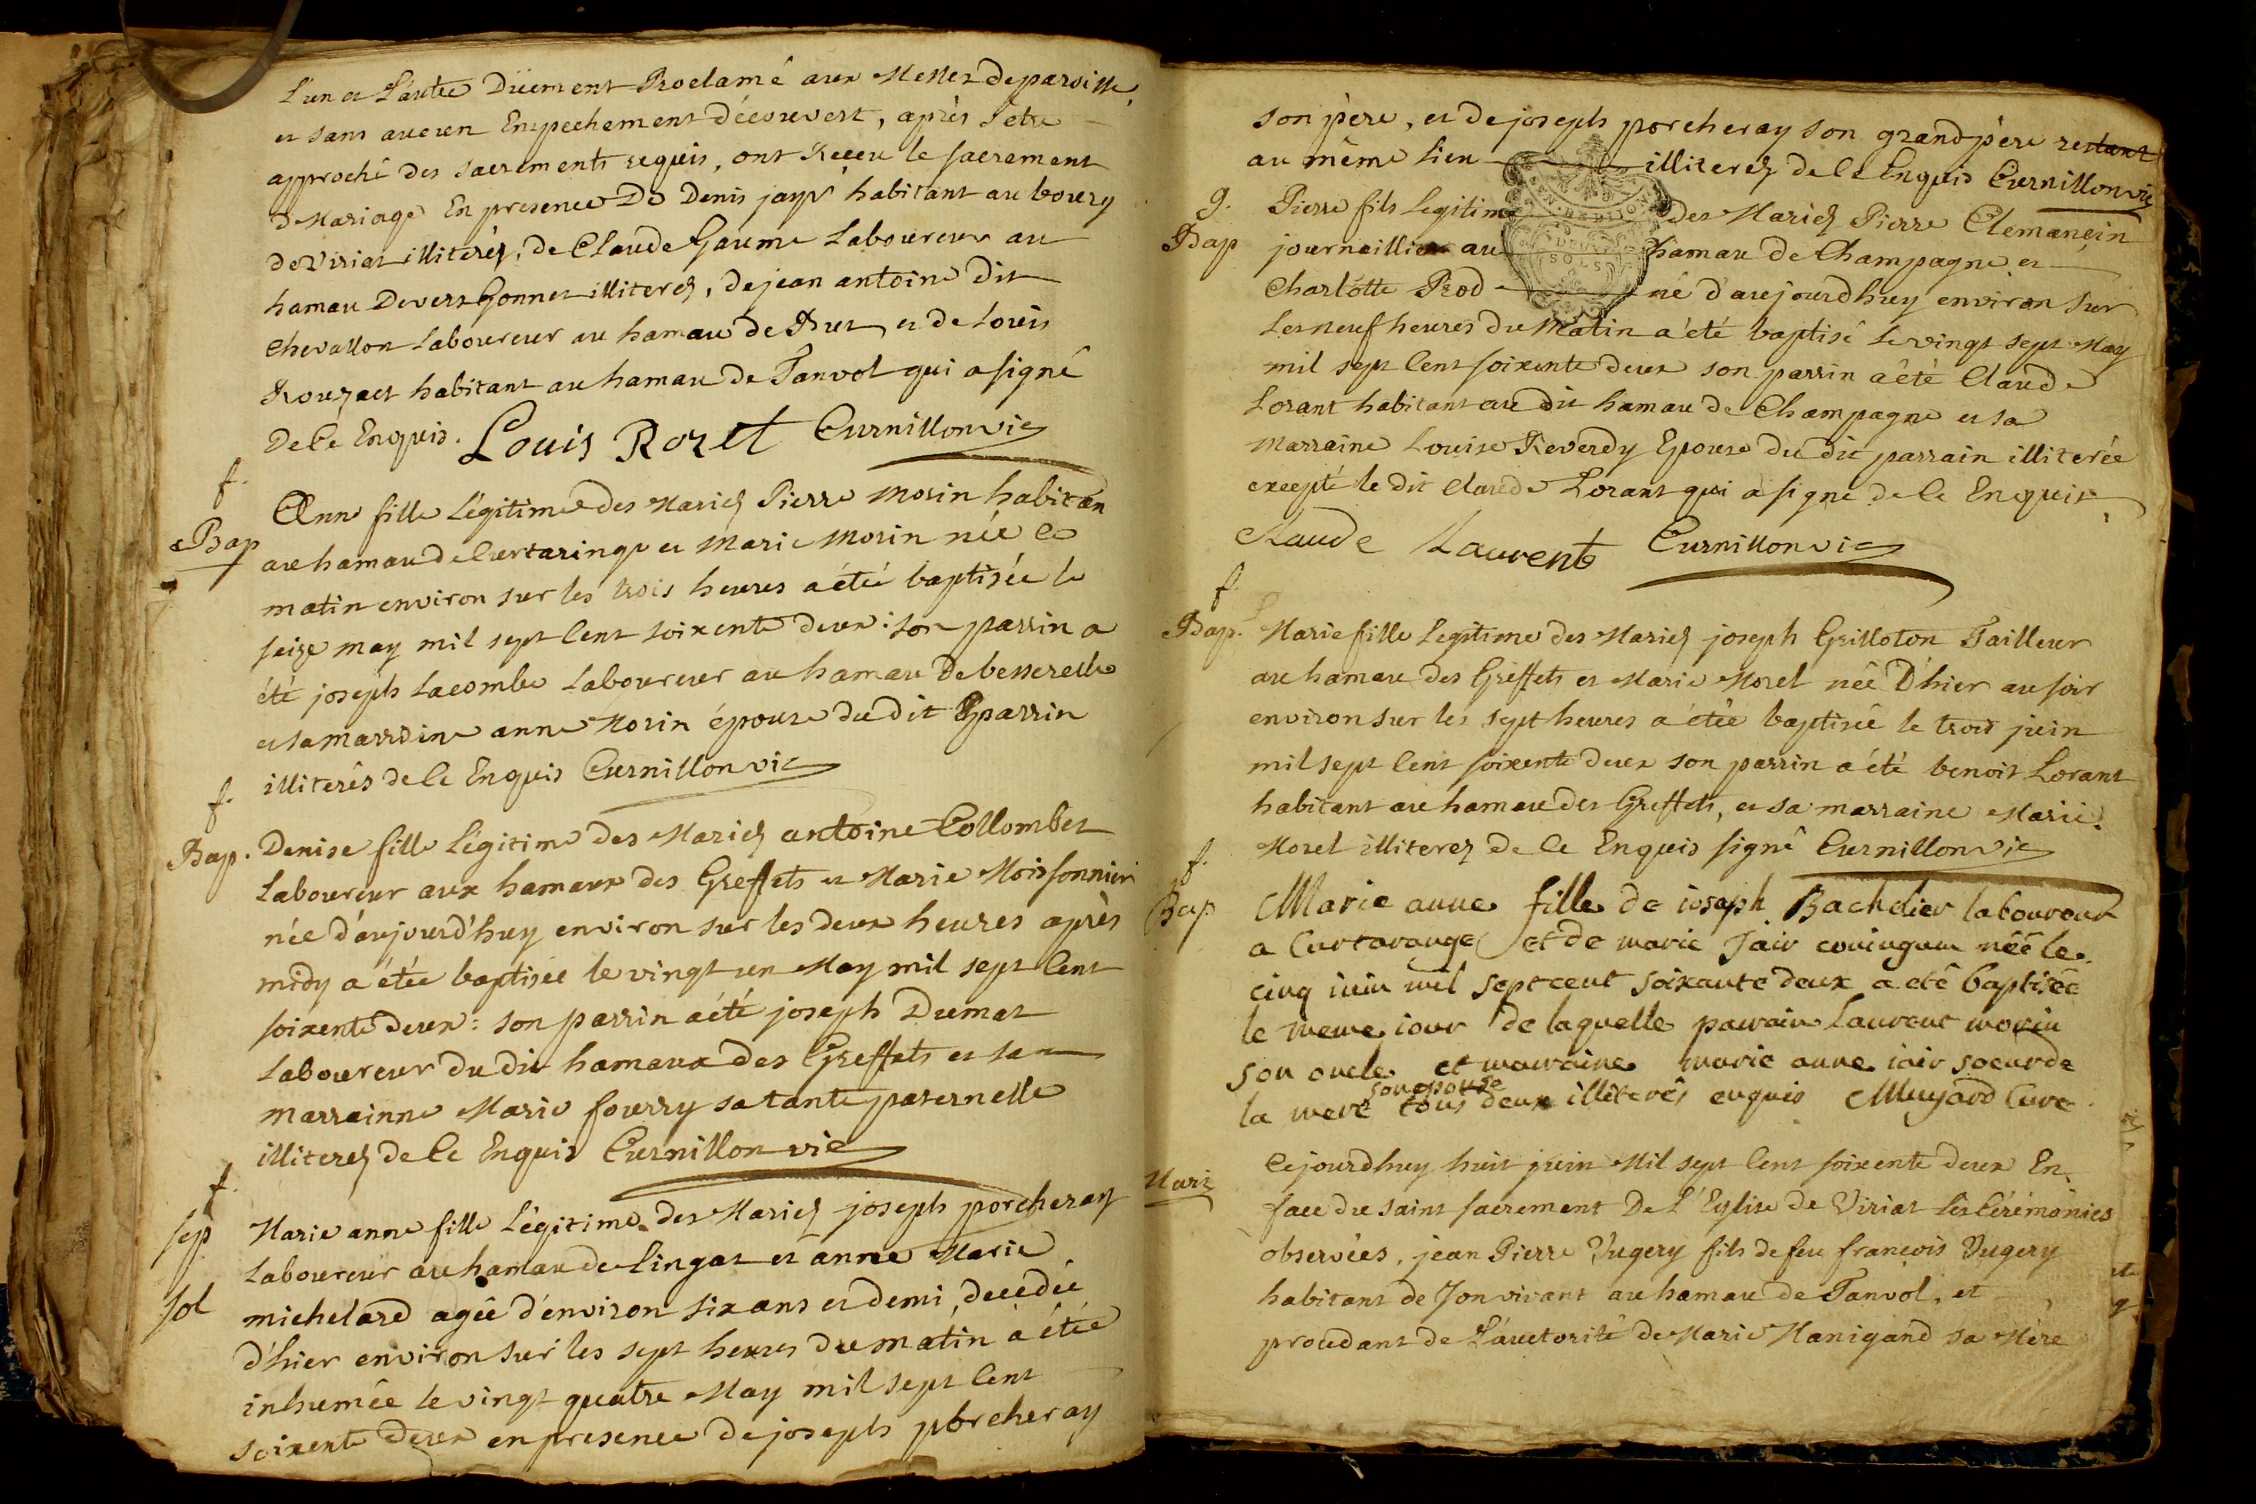 L'un et L'autre Dûement Proclamé aux Messes de paroisse,
et sans aucun Empechement découvert, après s'etre
approché des sacrements requis, ont Receu le sacrement
de Mariage En presence De Denis jayr habitant au bourg
de Viriat illiterés, de Claude Gaume Laboureur au
hamau De vers Gonnet illiterez, de jean antoine dit
chevallon Laboureur au hamau de But, et de Louis
Rouzact habitant au hamau de Tanvol qui a signé
De Ce Enquis. Louis Rozet Curnillon vic
f.
Bap
Ann fille Légitime des Mariez Pierre Morin habitan
au hamau de Curtaringe et Marie Morin née ce
matin environ sur les trois heures a étéé baptisée le
seize may mil sept Cent soixente deux : son parrin a
été joseph Lacombe Laboureur au hamau de besserelle
et sa marrdine anne Morin épouse du dit parrin
illiterés de Ce Enquis Curnillon vic
f.
Bap.
Denise fille Légitime des Mariez antoine Collombet
Laboureur aux hamaux des Greffets et Marie Moissonnier
née d'aujourd'huy environ sur les deux heures après
midy a étée baptisée le vingt un May mil sept Cent
soixente deux : son parrin a été joseph Dumas
Laboureur du dit hamaux des Greffets et sa
marrainne Marie fourry sa tante paternelle
illiterez de Ce Enquis Curnillon vic
f.
sep
Marie anne fille Légitime des Mariez joseph porcheray
Laboureur au hamau de Lingat et anne Marie
sol
michelard agée d'environ six ans et demi, decedée
d'hier environ sur les sept heures du matin a étée
inhumée le vingt quatre May mil sept Cent
soixente deux en presence de joseph porcheray
son père, et de joseph porcheray son grand père restant
au même lieu illiterez de Ce Enquis Curnillon vic
g.
Bap
Pierre fils Legitime des Mariez Pierre Clemancin
journaillier au hamau de Champagne et
Charlotte Prod né d'aujourdhuy environ sur
Les neuf heures du Matin a été baptisé le vingt sept May
mil sept Cent soixente deux son parrin a été Claude
Lorant habitant au dit hamau de Champagne et sa
Marraine Louise Reverdy Epouse du dit parrain illiterée
excepté le dit Claude Lorant qui a signé de Ce Enquis
Claude Laurent Curnillon vic
f.
Bap.
Marie fille Legitime des Mariez joseph Grilloton Tailleur
au hamau des Greffets et Marie Morel née D'hier au soir
environ sur les sept heures a étée baptisée le trois juin
mil sept Cent soixente deux son parrin a été benoit Lorant
habitant au hamau des Greffets, et sa marraine Marie
Morel illiterez de Ce Enquis signé Curnillon vic
f.
Bap
Marie anne fille de ioseph Bachelier laboureur
a Curtarange et de marie Jair coniugum néé le
cinq iuin mil sept cent soixante deux a eté baptisée
le meme iour de laquelle parrain Laurent morin
son oncle et marraine marie anne iair soeur de
son epouse
la mere tous deux illiterés enquis Muyard Curé
Mari
Cejourdhuy huit juin Mil sept Cent soixente deux En
face du saint sacrement De L'Eglise de Viriat les Cérémonies
observées, jean Pierre Vugery fils de feu françois Vugery
habitant de Son vivant au hamau de Tanvol, et
procedant de L'auctorité de Marie Manigand sa Mère